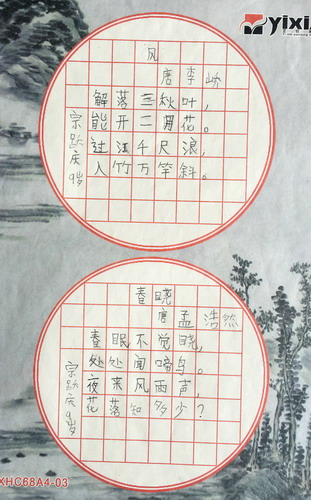 yixi
风
唐 李峤
解落三秋叶，
能开二月花。
过江千尺浪，
入竹万竿斜。
宗跃庆9岁
春晓
唐 孟浩然
春眠不觉晓，
处处闻啼鸟。
夜来风雨声，
花落知多少？
宗跃庆9岁
XHC68A4-03